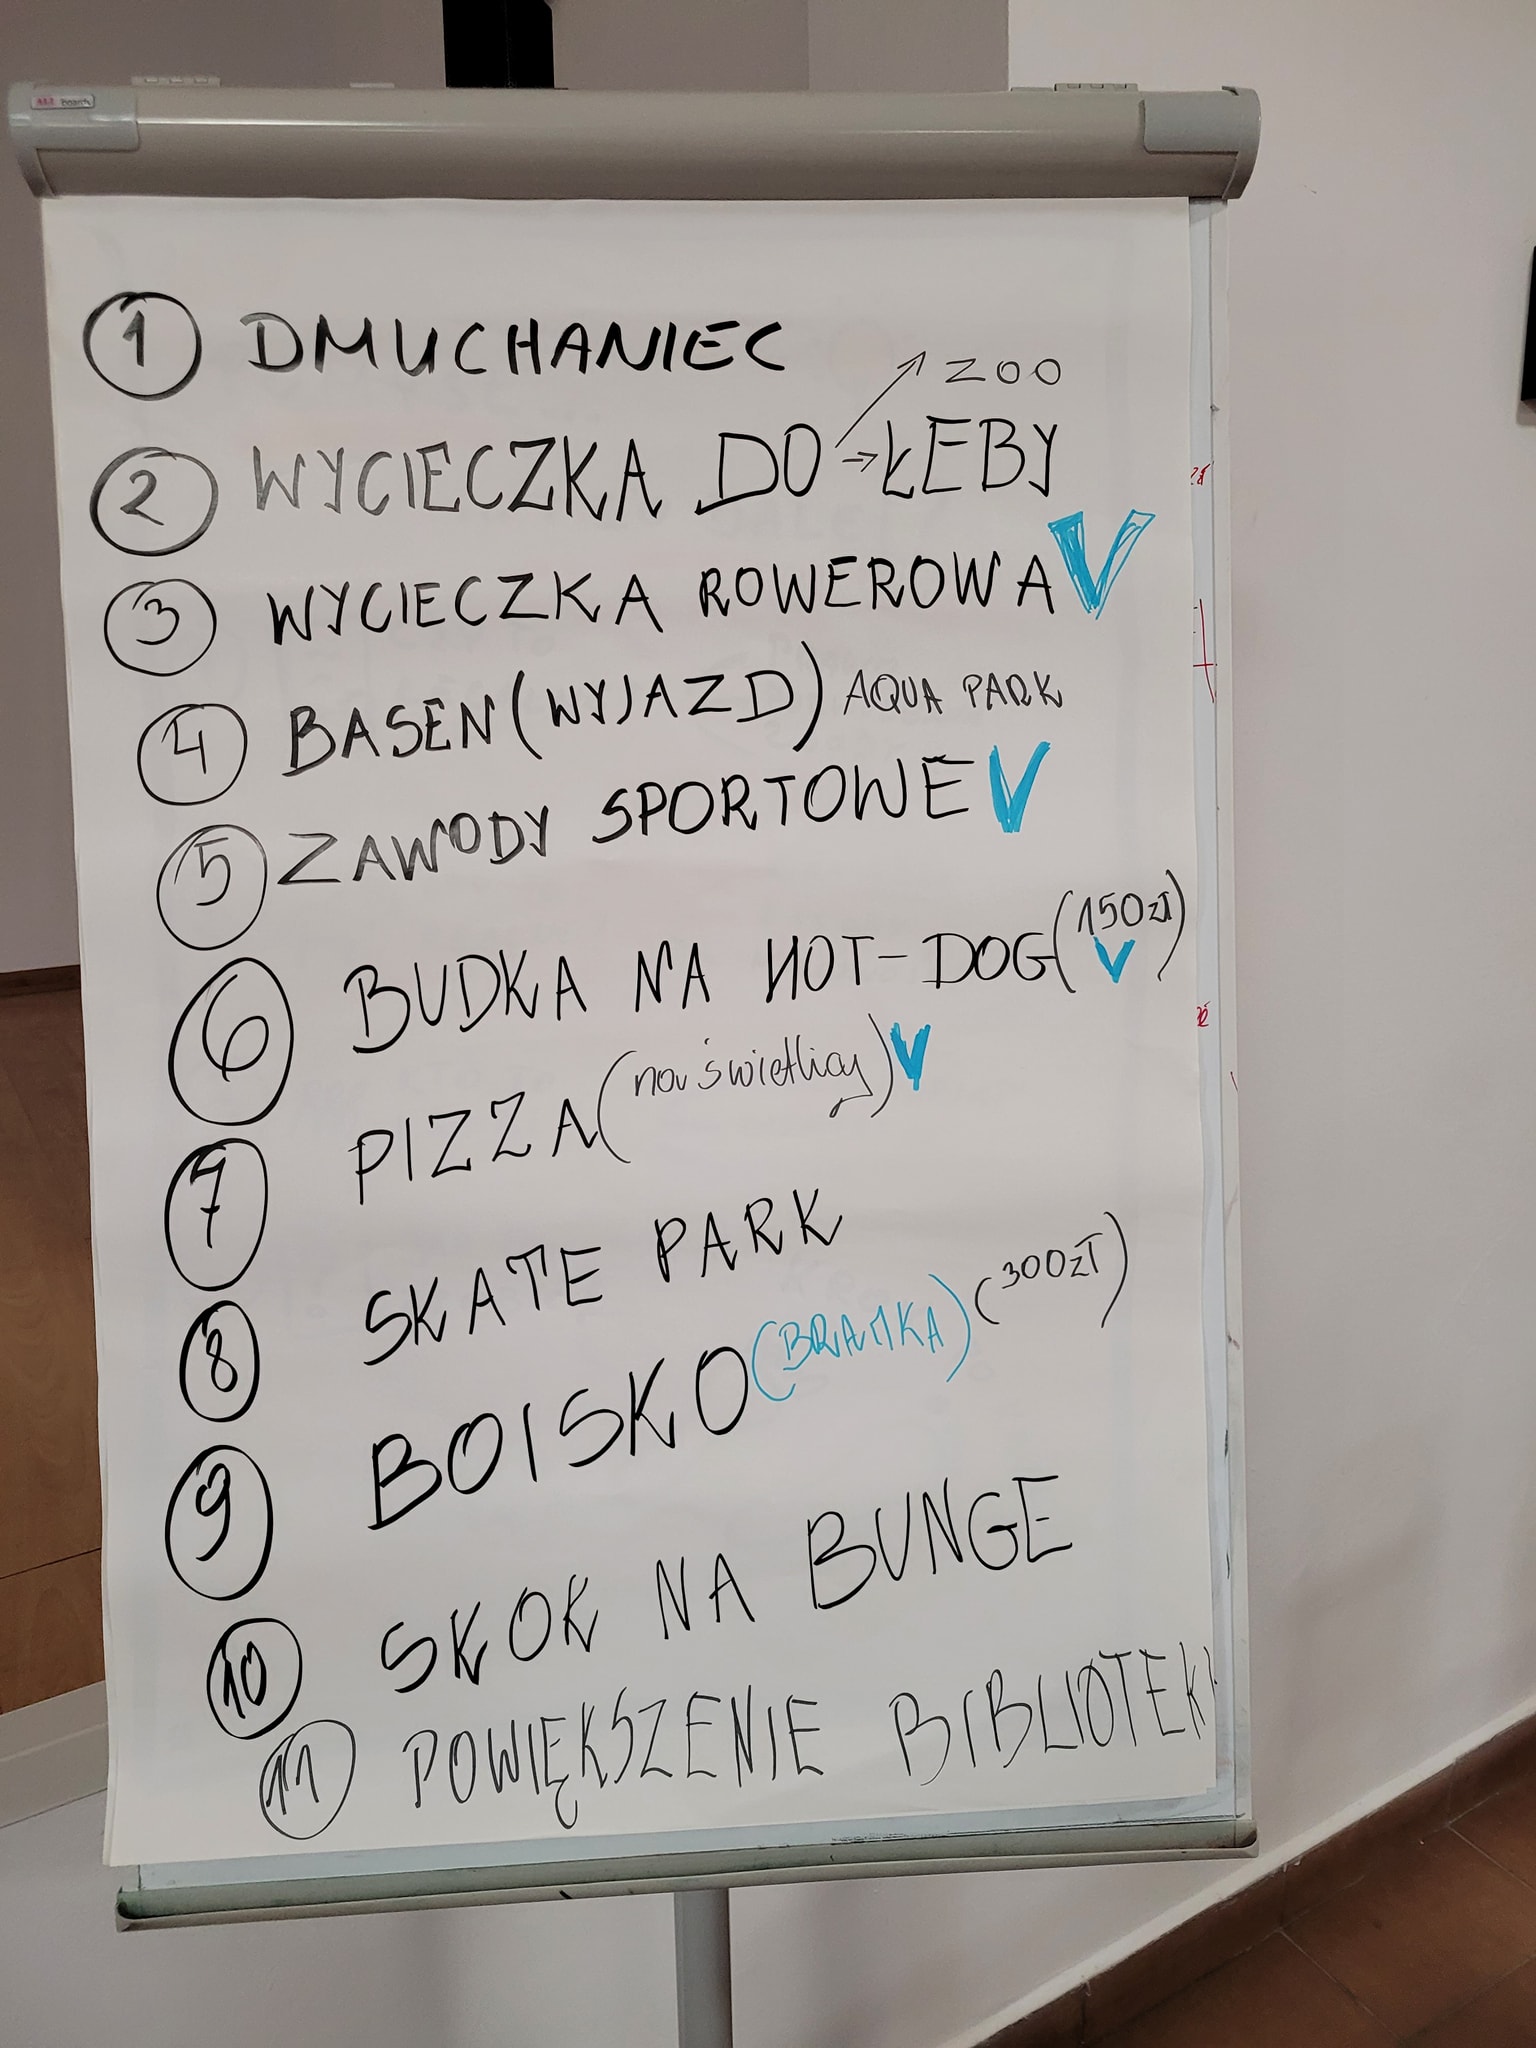 1 DMUCHANIEC
→ ZOO
2 WYCIECZKA DO → ŁEBY
3 WYCIECZKA ROWEROWA V
4 BASEN (WYJAZD) AQUA PARK
5 ZAWODY SPORTOWE V
6 BUDKA NA HOT-DOG (150 zł) V
7 PIZZA (na świetlicy) V
8 SKATE PARK
9 BOISKO (BRAMKA) (300 zł)
10 SKOK NA BUNGE
11 POWIĘKSZENIE BIBLIOTEKI